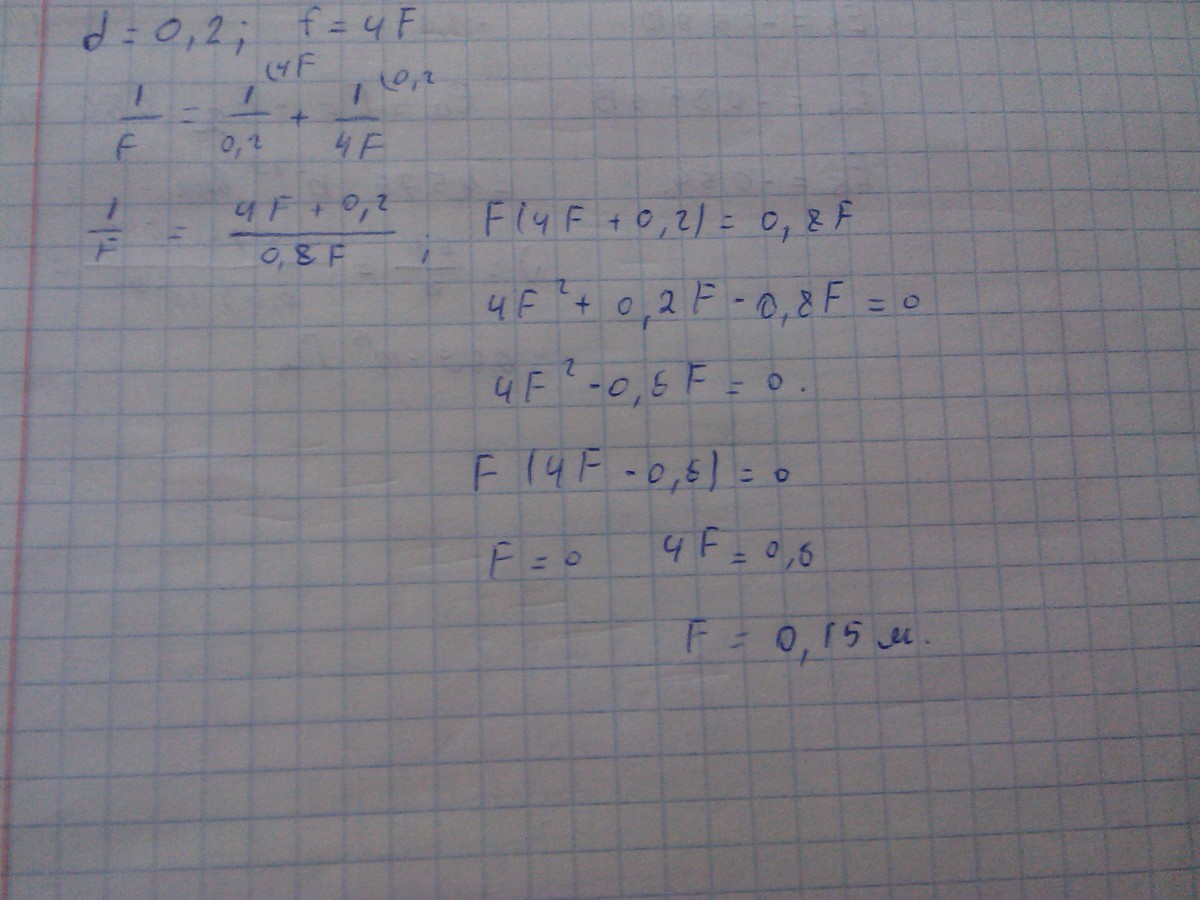 d = 0,2; f = 4F
1/F = 1/0,2 (4F + 1/4F (0,2
1/F = (4F + 0,2)/0,8F ; F(4F + 0,2) = 0,8F
4F² + 0,2F - 0,8F = 0
4F² - 0,6F = 0.
F (4F - 0,6) = 0
F = 0 4F = 0,6
F = 0,15 м.